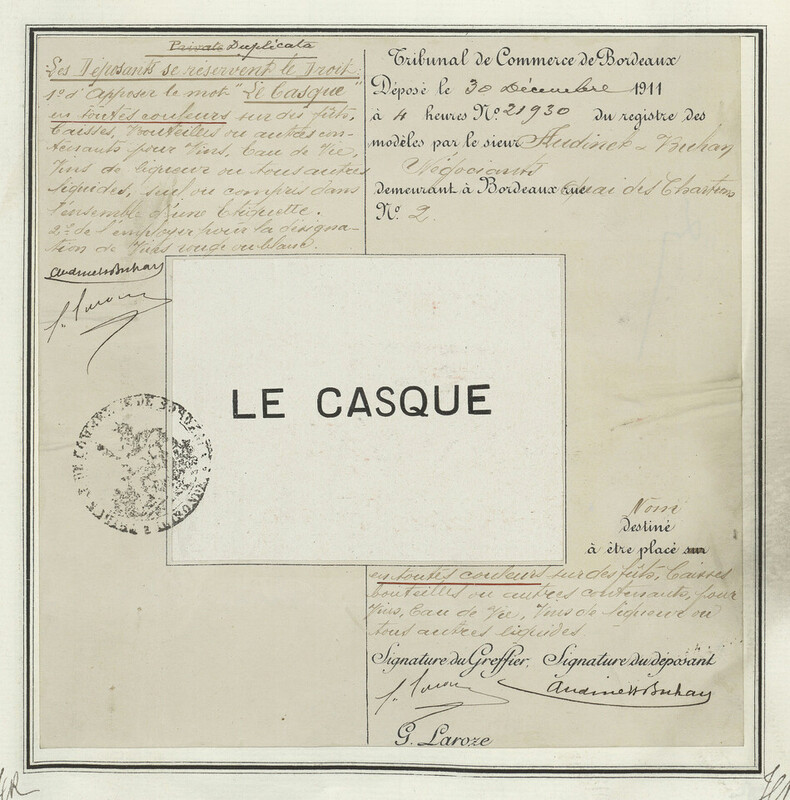 Duplicata
Les Déposants se réservent le Droit
1º d'apposer le mot "Le Casque"
en toutes couleurs sur des fûts,
Caisses, Bouteilles ou autres con-
tenants pour Vins, Eau de Vie,
Vins de liqueur ou tous autres
liquides, seul ou compris dans
l'ensemble d'une Etiquette.
2º de l'employer pour la désigna-
tion de Vins rouge ou blanc.
Audinet & Buhan
Tribunal de Commerce de Bordeaux
Déposé le 30 Décembre 1911
à 4 heures Nº 21930 du registre des
modèles par le sieur Audinet & Buhan
Négociants
demeurant à Bordeaux rue Quai des Chartrons
Nº 2.
LE CASQUE
TRIBUNAL DE COMMERCE DE BORDEAUX
GIRONDE
Nom
destiné
à être placé sur
en toutes couleurs sur des fûts, Caisses
bouteilles ou autres contenants, pour
Vins, Eau de Vie, Vins de liqueur ou
tous autres liquides
Signature du Greffier. Signature du déposant
Audinet & Buhan
G. Laroze